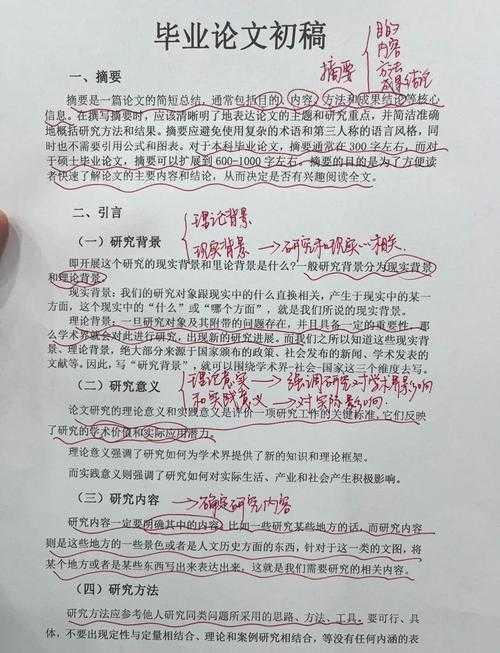 毕业论文初稿
目的
内容
方法
成果结论
摘要
一、摘要
摘要是一篇论文的简短总结，通常包括目的、内容、方法和成果结论等核心
信息。在撰写摘要时，应该清晰明了地表达论文的主题和研究重点，并简洁准确
地概括研究方法和结果。摘要应避免使用复杂的术语和第三人称的语言风格，同
时也不需要引用公式和图表。对于本科毕业论文，摘要通常在 300 字左右，而对
于硕士毕业论文，摘要可以扩展到 600-1000 字左右。摘要的目的是为了方便读
者快速了解论文的主要内容和结论，从而决定是否有兴趣阅读全文。
二、引言
理论背景
（一）研究背景
现实背景 → 研究和现实心相关
即开展这个研究的现实背景和里论背景是什么？一般研究背景分为现实背景
和理论背景。
现实背景：我们的研究对象跟现实中的什么直接相关，产生于现实中的某一
方面，这个现实中的“什么”或“哪个方面”，就是我们所说的现实背景。
理论背景：一旦研究对象及其附带的问题存在，并且具备一定的重要性，那
么学术界就会对此进行研究，出现新的研究进展。而我们之所以知道这些现实背
景、理论背景，绝大部分来源于国家颁布的政策、社会发布的新闻、学术发表的
文献等。因此，写“研究背景”，就可以围绕学术界-社会-国家这三个维度去写。
理论意义 → 强调研究对学术界影响
（二）研究意义
和实践意义 → 对实际影响
论文研究的理论意义和实践意义是评价一项研究工作的关键标准，它们反映
了研究的学术价值和实际应用潜力。
理论意义强调了研究如何为学术界提供了新的知识和理论框架。
而实践意义则强调了研究如何对实际生活、产业和社会产生积极影响。
（三）研究内容 → 确定研究内容
研究内容一定要明确其中的内容，比如一些研究某些地方的话，而研究内容
则是这些地方的一些景色或者是人文历史方面的东西，针对于这一类的文图，将
某个地方或者是某些东西写出来表达出来。这就是我们需要研究的相关内容。
（四）研究方法
研究方法应参考他人研究同类问题所采用的思路、方法、工具。要可行、具
体，不要出现定性与定量相结合、理论和案例研究相结合，等没有任何内涵的表